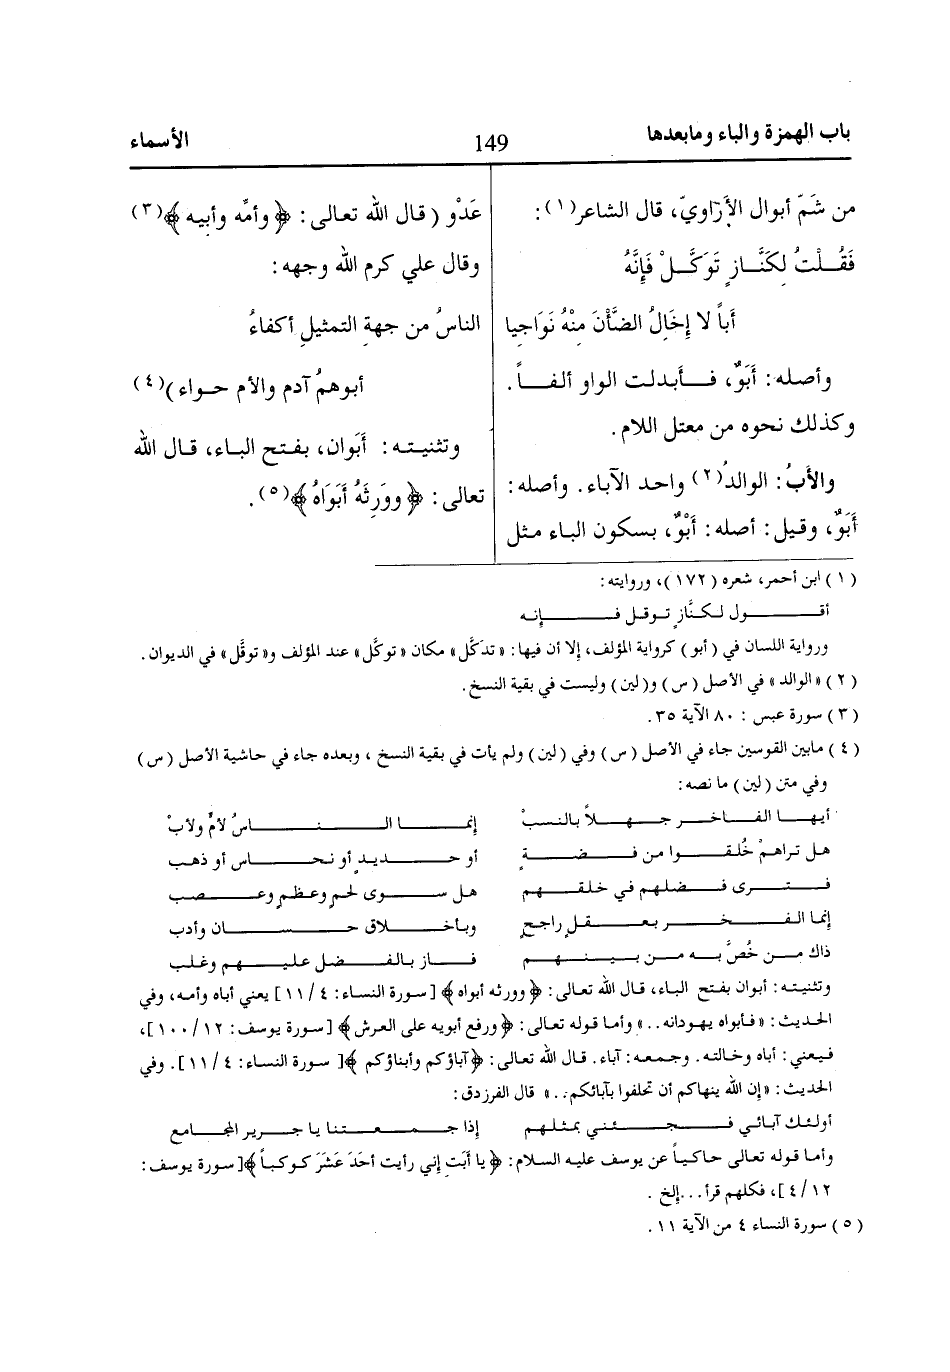 باب الهمزة والباء ومابعدها
149
الأسماء
من شَمّ أبوال الأرَاويّ، قال الشاعر(١):
فَقُـلْـتُ لِكَنَّـازٍ تَوَكَّـلْ فَإِنَّهُ
أباً لا إخَالُ الضَّأْنَ مِنْهُ نَوَاجِيا
وأصله: أَبَوٌ، فـأبدلت الواو ألفـاً.
وكذلك نحوه من معتل اللام.
والأبُ: الوالدُ(٢) واحد الآباء. وأصله:
أَبَوٌ، وقيل: أصله: أَبْوٌ، بسكون الباء مثل
عَدْو (قال الله تعالى: ﴿وأمِّه وأبيه﴾(٣)
وقال علي كرم الله وجهه:
الناسُ من جهةِ التمثيلِ أكفاءُ
أبوهمُ آدم والأم حـواء)(٤)
وتثنيتـه: أَبَوان، بفتـح البـاء، قـال الله
تعالى: ﴿وورَثَهُ أبَوَاهُ﴾(٥).
(١) ابن أحمر، شعره (١٧٢)، وروايته:
أقـــول لـكـنَّازٍ تـوقـل فـــإنـه
ورواية اللسان في (أبو) كرواية المؤلف، إلا أن فيها: «تدَكَّل» مكان «توكَّل» عند المؤلف و«توقَّل» في الديوان.
(٢) «الوالد» في الأصل (س) و(لين) وليست في بقية النسخ.
(٣) سورة عبس : ٨٠ الآية ٣٥.
(٤) مابين القوسين جاء في الأصل (س) وفي (لين) ولم يأت في بقية النسخ ، وبعده جاء في حاشية الأصل (س)
وفي متن (لين) ما نصه:
أيهـا الفـاخـر جهـلاً بالنسبْ إنمـا النـاسُ لأمٍّ ولأبْ
هل تراهمْ خُلقـوا من فـضـة أو حـديـدٍ أو نحـاس أو ذهب
فـتـرى فـضلهم في خلقـهم هل سـوى لحمٍ وعظمٍ وعـصب
إنما الفـخـر بعـقلٍ راجحٍ وبأخـلاق حـسـان وأدب
ذاك مـن خُصَّ بـه من بـيـنـهم فـاز بالفـضل عليـهم وغلب
وتثنيته: أبوان بفتح الباء، قال الله تعالى: ﴿وورثه أبواه﴾ [سورة النساء: ١١/٤] يعني أباه وأمه، وفي
الحديث: «فـأبواه يهودانه..» وأما قوله تعالى: ﴿ورفع أبويه على العرش﴾ [سورة يوسف: ١٠٠/١٢]،
فيعني: أباه وخالته. وجمعه: آباء. قال الله تعالى: ﴿آباؤكم وأبناؤكم﴾[ سورة النساء: ١١/٤]. وفي
الحديث: «إن الله ينهاكم أن تحلفوا بآبائكم..» قال الفرزدق:
أولئـك آبـائـي فـجـئـني بمثلهم إذا جـمـعتنـا يا جـرير المجـامع
وأما قوله تعالى حاكيـاً عن يوسف عليه السلام: ﴿يا أبَتِ إني رأيت أحَدَ عَشَرَ كوكباً﴾[سورة يوسف:
٤/١٢]، فكلهم قرأ...إلخ .
(٥) سورة النساء ٤ من الآية ١١.